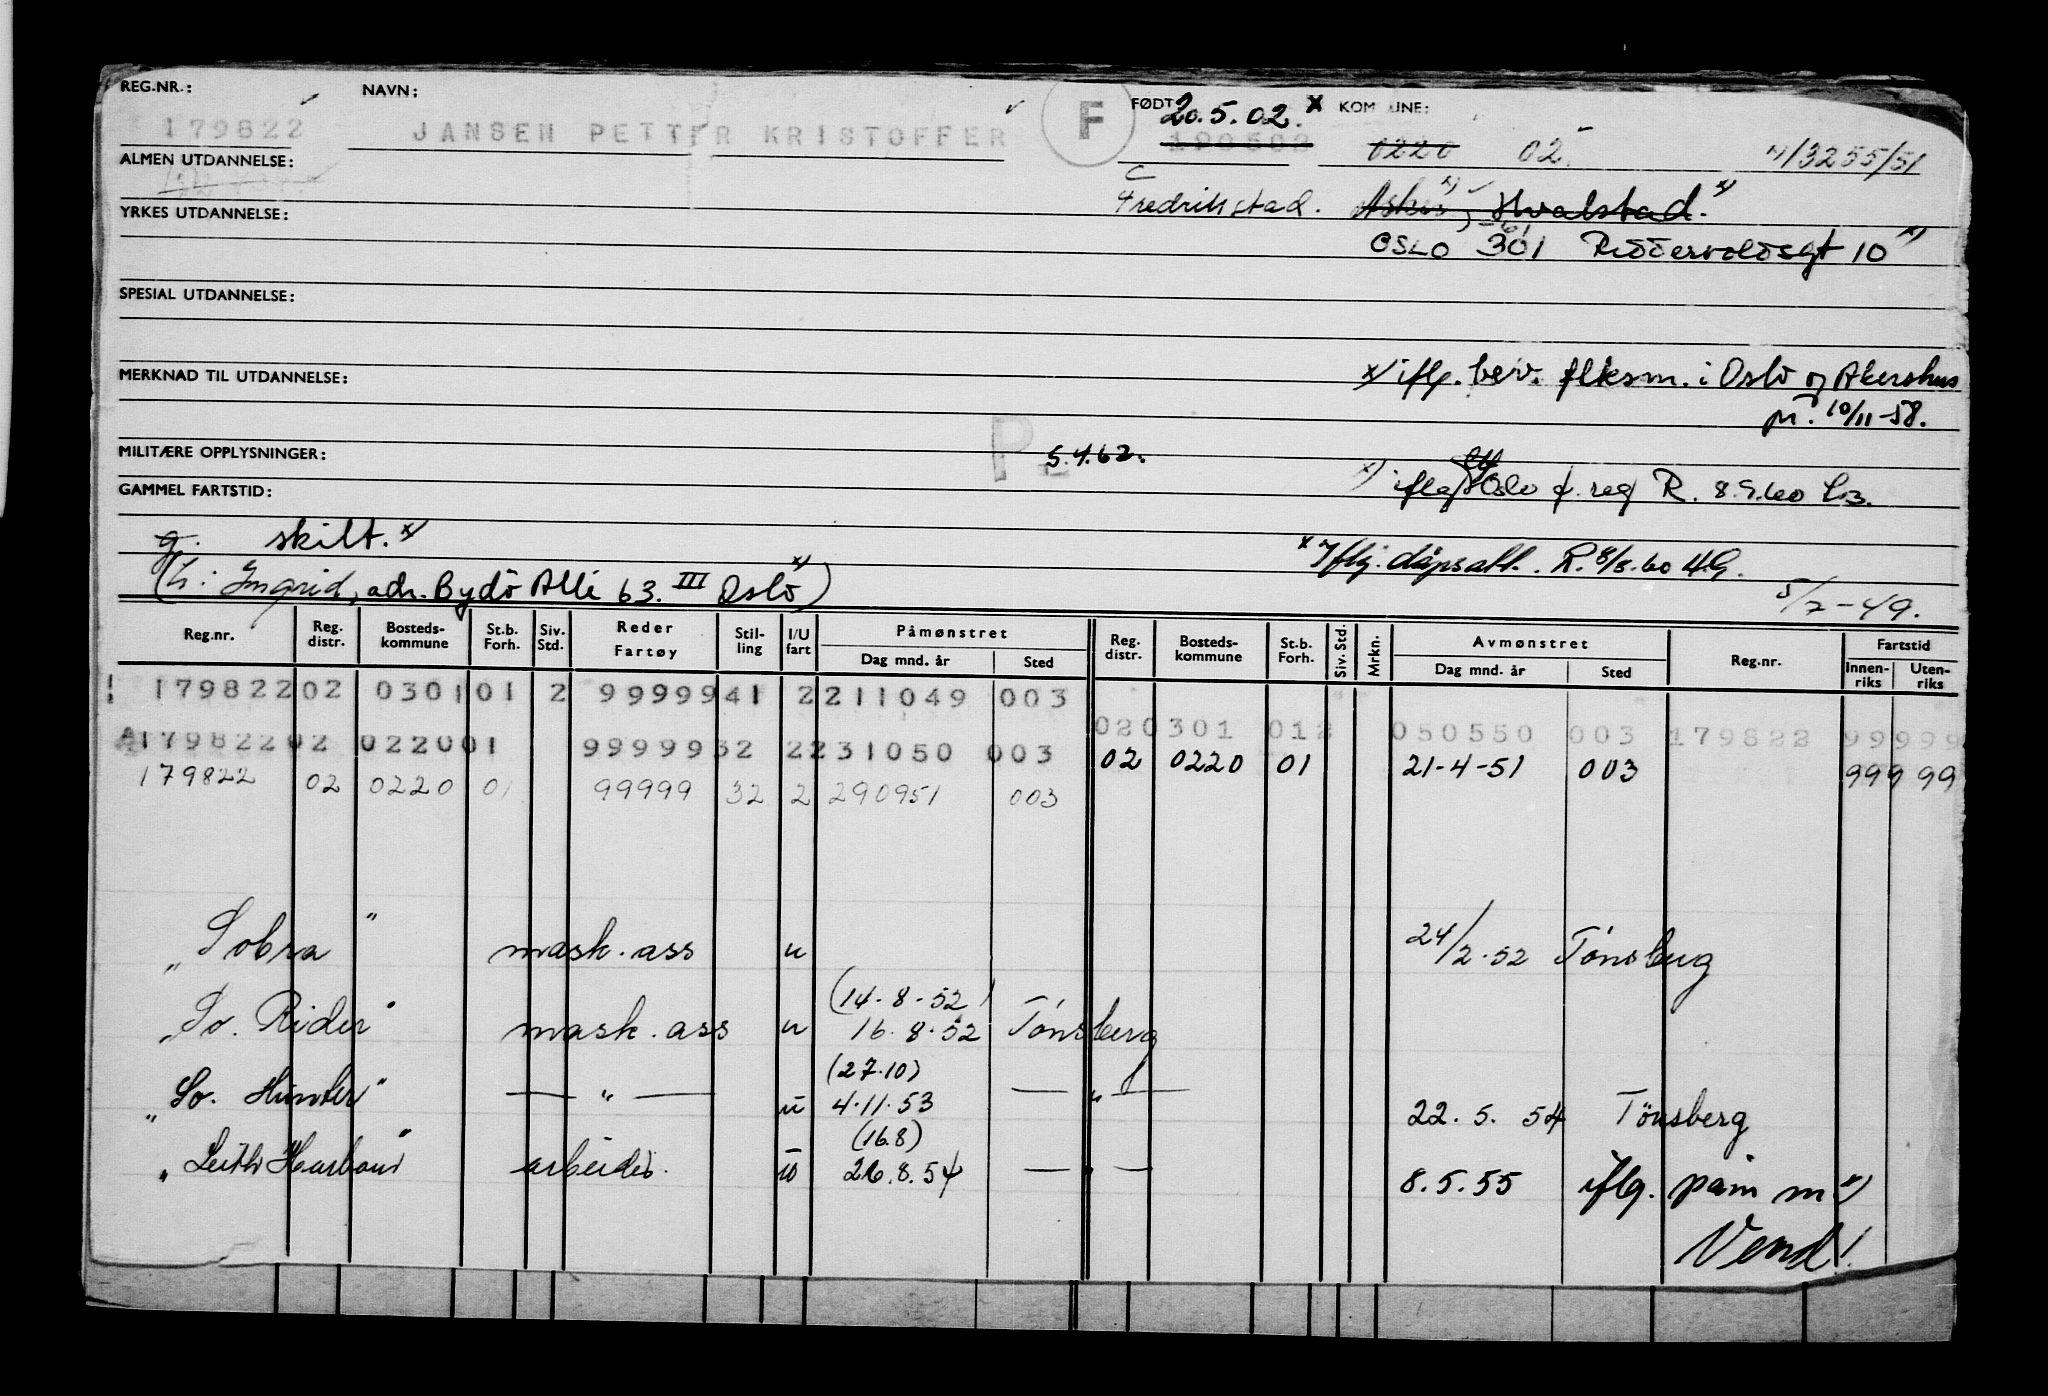 REG.NR.: NAVN: F FØDT 20.5.02. x KOMMUNE:
179822 JANSEN PETTER KRISTOFFER 190502 0220 02 x) 13255/51
ALMEN UTDANNELSE:
Fredrikstad. Asker x), Hvalstad. x)
YRKES UTDANNELSE:
OSLO 301 Riddervoldsgt 10 x)
SPESIAL UTDANNELSE:
MERKNAD TIL UTDANNELSE: x) iflg. bev. flksm. i Oslo og Akershus
pr. 10/11-58.
MILITÆRE OPPLYSNINGER: P 5.4.62.
GAMMEL FARTSTID: x) iflg Oslo f. reg R. 8.9.60
g. skilt. x)
x Iflg. dåpsatt. R. 8/8.60 H.G.
(h: Ingrid, adr. Bydö Alle 63. III Oslo x)
5/7-49.
Reg.nr. Reg. distr. Bosteds- kommune St.b. Forh. Siv. Std. Reder Fartøy Stil- ling I/U fart Påmønstret Dag mnd. år Sted Reg. distr. Bosteds- kommune St.b. Forh. Siv. Std. Mrkn. Avmønstret Dag mnd. år Sted Reg.nr. Fartstid Innen- riks Uten- riks
179822 02 0301 01 2 99999 41 2 211049 003
02 0301 01 2 050550 003 179822 99999
A179822 02 0220 01 99999 32 2 231050 003
02 0220 01 21-4-51 003 999 99
179822 02 0220 01 99999 32 2 290951 003
"Sobra" mask. ass u 24/2.52 Tønsberg
(14-8-52)
"So. Rider" mask. ass u 16.8.52 Tønsberg
(27.10)
"So. Hunter" — " — u 4.11.53 — " — 22.5.54 Tönsberg
(16.8)
"Leith Harbour" arbeider. u 26.8.54 — " — 8.5.55 iflg. påm m x)
Vend!